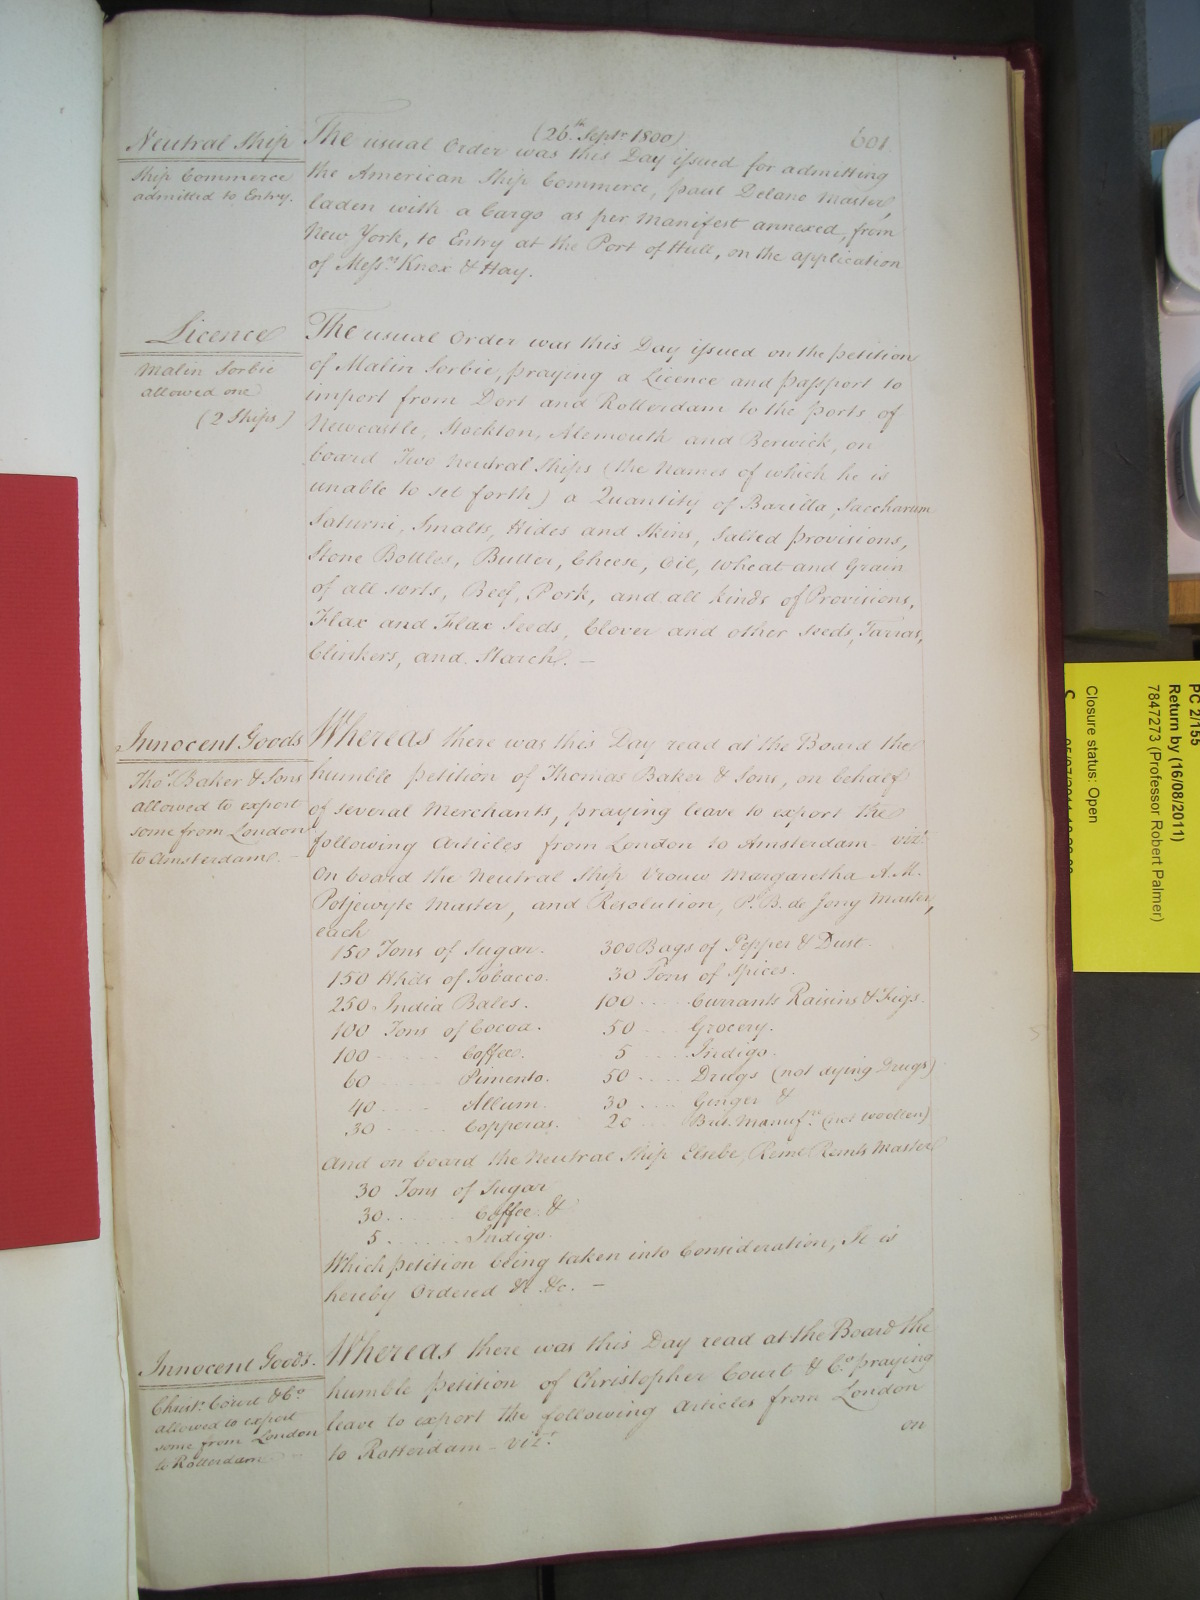 (26th Septr 1800)
601
Neutral Ship
Ship Commerce
admitted to Entry.
The usual Order was this Day issued for admitting
the American Ship Commerce, Paul Delano Master,
laden with a Cargo as per Manifest annexed, from
New York, to Entry at the Port of Hull, on the application
of Messrs Knox & Hay.
Licence
Malin Sorbie
allowed one
(2 Ships)
The usual Order was this Day issued on the petition
of Malin Sorbie, praying a Licence and Passport to
import from Dort and Rotterdam to the Ports of
Newcastle, Stockton, Alemouth and Berwick, on
board Two Neutral Ships (the Names of which he is
unable to set forth) a Quantity of Barilla, Saccharum
Saturni, Smalts, Hides and Skins, Salted Provisions,
Stone Bottles, Butter, Cheese, Oil, Wheat and Grain
of all sorts, Beef, Pork, and all kinds of Provisions,
Flax and Flax Seeds, Clover and other Seeds, Tarras,
Clinkers, and Starch. –
Innocent Goods
Thos Baker & Sons
allowed to export
some from London
to Amsterdam. –
Whereas there was this Day read at the Board the
humble petition of Thomas Baker & Sons, on behalf
of several Merchants, praying leave to export the
following Articles from London to Amsterdam – vizt
On board the Neutral Ship Vrouw Margaretha A.M.
Potjewyte Master, and Resolution, P. B. de Jong Master,
each
150 Tons of Sugar. 300 Bags of Pepper & Dust.
150 Hhds of Tobacco. 30 Tons of Spices.
250 India Bales. 100 .... Currants Raisins & Figs.
100 Tons of Cocoa. 50 .... Grocery.
100 ...... Coffee. 5 .... Indigo.
60 ...... Pimento. 50 .... Drugs (not dying Drugs)
40 ...... Allum. 30 .... Ginger &
30 ...... Copperas. 20 .... Brit. Manufre (not woollen)
And on board the Neutral Ship Elsebe, Remt Remts Master
30 Tons of Sugar
30 ...... Coffee &
5 ...... Indigo.
Which petition being taken into Consideration; It is
hereby Ordered &c &c. –
Innocent Goods.
Christr Court & Co
allowed to export
some from London
to Rotterdam –
Whereas there was this Day read at the Board the
humble petition of Christopher Court & Co praying
leave to export the following Articles from London
to Rotterdam – vizt
on
PC 2/155
Return by (16/08/2011)
7847273 (Professor Robert Palmer)
Closure status: Open
C